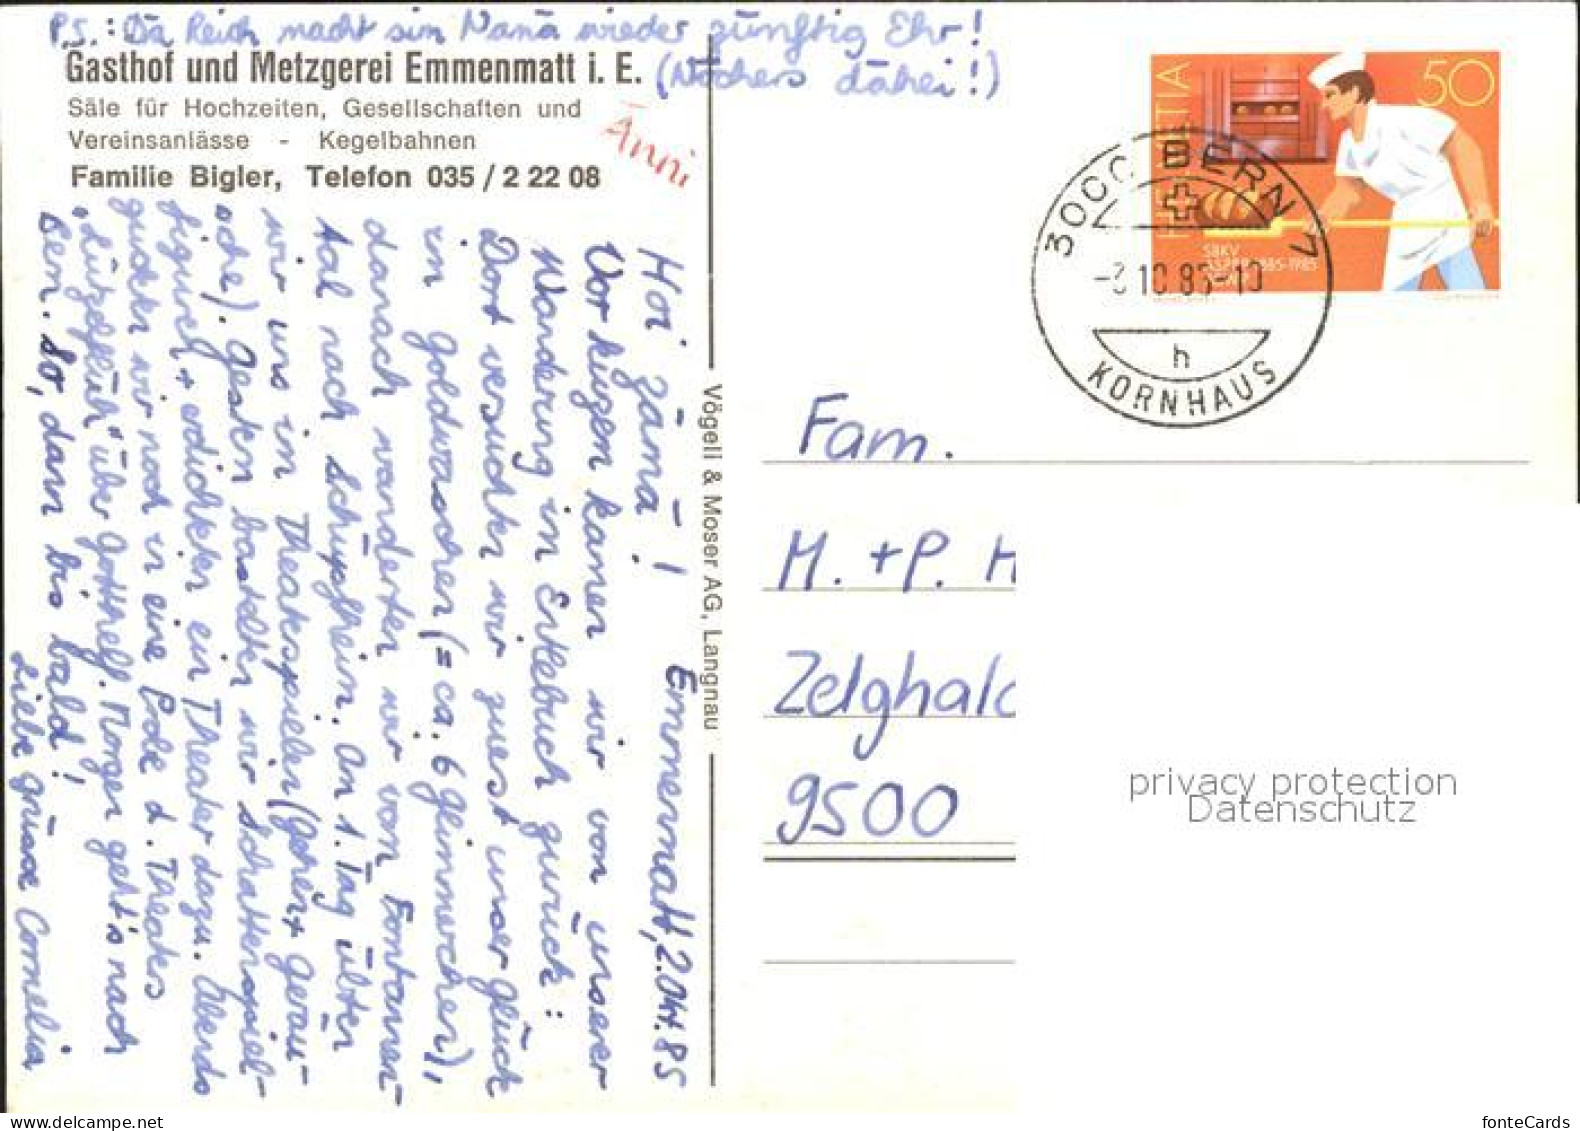 P.S.: Dä Reich macht sim Namä wieder zünftig Ehr!
(Nöchers dähei!)
Gasthof und Metzgerei Emmenmatt i. E.
Säle für Hochzeiten, Gesellschaften und
Vereinsanlässe - Kegelbahnen
Familie Bigler, Telefon 035 / 2 22 08
Änni
Emmenmatt, 2. Okt. 85
Hoi zämä!
Vor kurzem kamen wir von unserer
Wanderung im Entlebuch zurück:
Dort versuchten wir zuerst unser Glück
im Goldwaschen (= ca. 6 Glimmerchen),
danach wanderten wir vom Fontannen-
tal nach Schüpfheim. Am 1. Tag übten
wir uns im Theaterspielen (Gehen + Geräu-
sche). Gestern bastelten wir Schattenspiel-
figuren + erdichteten ein Theater dazu. Abends
guckten wir noch in eine Probe d. Theaters
"Lützelflüh" über Gotthelf. Morgen geht's nach
Bern. So, dann bis bald!
Liebe Grüsse Cornelia
Vögeli & Moser AG, Langnau
HELVETIA
50
SBKV
1885-1985
3000 BERN 7
-3.10.85-10
h
KORNHAUS
Fam.
H. + P. H
Zelghald
9500
privacy protection
Datenschutz
fonteCards